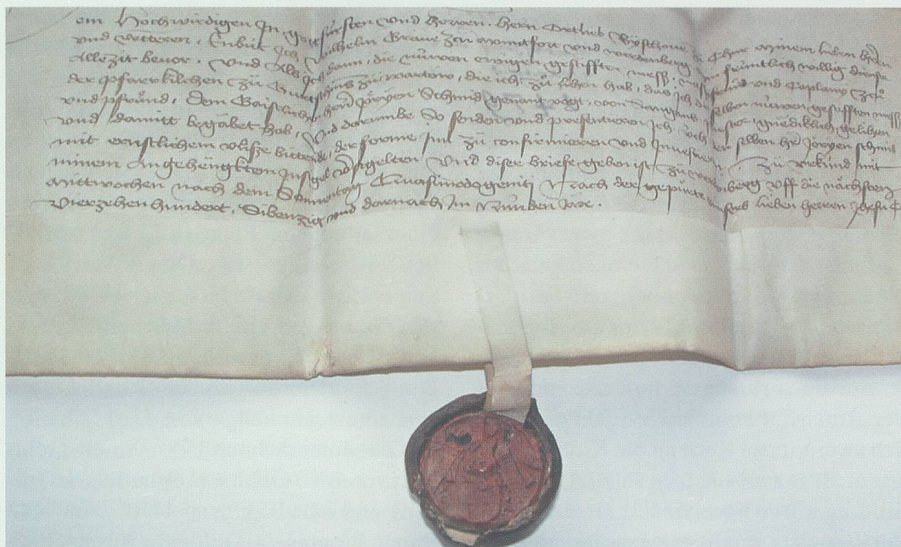 em Hochwirdigen In gott fürsten und herren, hern Ortlieb Byschove Chur minem lieben hern
und vetteren, Enbüt Ich Wilhelm Grave zu montfort und werdenberg früntlich willig dienst
Alle zit bevor, Und Als Ich dann, die nüwen ewigen gestifften mess, und Caplany zu
der pfarrkilchen zu zu wartow, die ich zu lihen hab, das ich die selben nüwen gestifften mess
und pfrund, dem Gaistlichen hern Jörgen Schmid genant vogt, von Sangans luter, gnädiklich gelihen
und damitt begabet hab, Und darumbe So senden und presentieren Ich, üch den selben hern Jörgen schmid
mit ernstlichem vlisse bittende, der forme Im zu confirmieren und Zu urkund mit
minem Angehengkten Insigel versigelten Und diser brieff geben ist zu uff die nächsten
Mittwochen nach dem Sonnentag Quasimodogeniti Nach der gepurt lieben herren Jhesu
Vierzehen hundert, Sibenzig und darnach Im Nünden Jare.